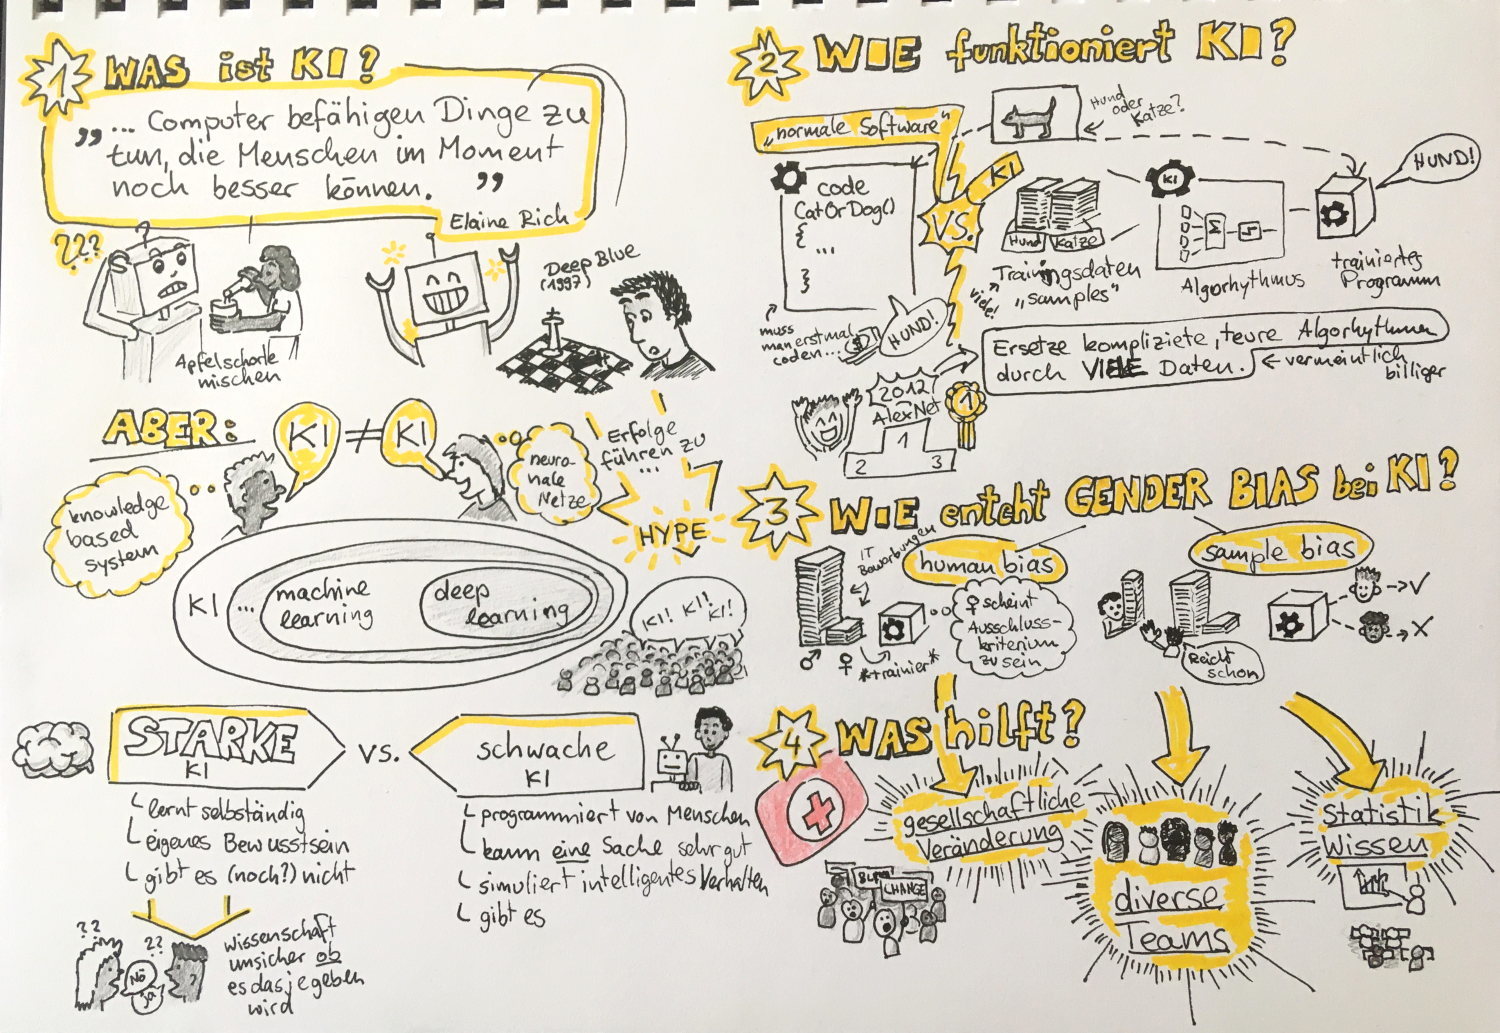 1 WAS ist KI?
„... Computer befähigen Dinge zu
tun, die Menschen im Moment
noch besser können. ”
Elaine Rich
???
?
Apfelschorle
mischen
Deep Blue
(1997)
ABER:
KI ≠ KI
knowledge
based
system
neuro-
nale
Netze
Erfolge
führen zu
...
HYPE
KI ...
machine
learning
deep
learning
KI! KI! KI!
STARKE
KI
vs.
schwache
KI
lernt selbständig
eigenes Bewusstsein
gibt es (noch?) nicht
programmiert von Menschen
kann eine Sache sehr gut
simuliert intelligentes Verhalten
gibt es
??
??
Nö
Ja
Wissenschaft
unsicher ob
es das je geben
wird
2 WIE funktioniert KI?
„normale Software“
Hund
oder
Katze?
HUND!
code
CatOrDog()
{
...
}
VS.
KI
Hund Katze
Trainingsdaten
„samples“
viele!
KI
Σ
Algorhythmus
trainiertes
Programm
muss
man erstmal
coden...
$
HUND!
Ersetze komplizierte, teure Algorhythmen
durch VIELE Daten.
vermeintlich
billiger
2012
AlexNet
1
1
2 3
3 WIE entcht GENDER BIAS bei KI?
IT
Bewerbungen
human bias
sample bias
♀ scheint
Ausschluss-
kriterium
zu sein
♂ ♀
*trainier*
Reicht
schon
→ V
→ X
4 WAS hilft?
gesellschaftliche
Veränderung
CHANGE
diverse
Teams
Statistik
Wissen